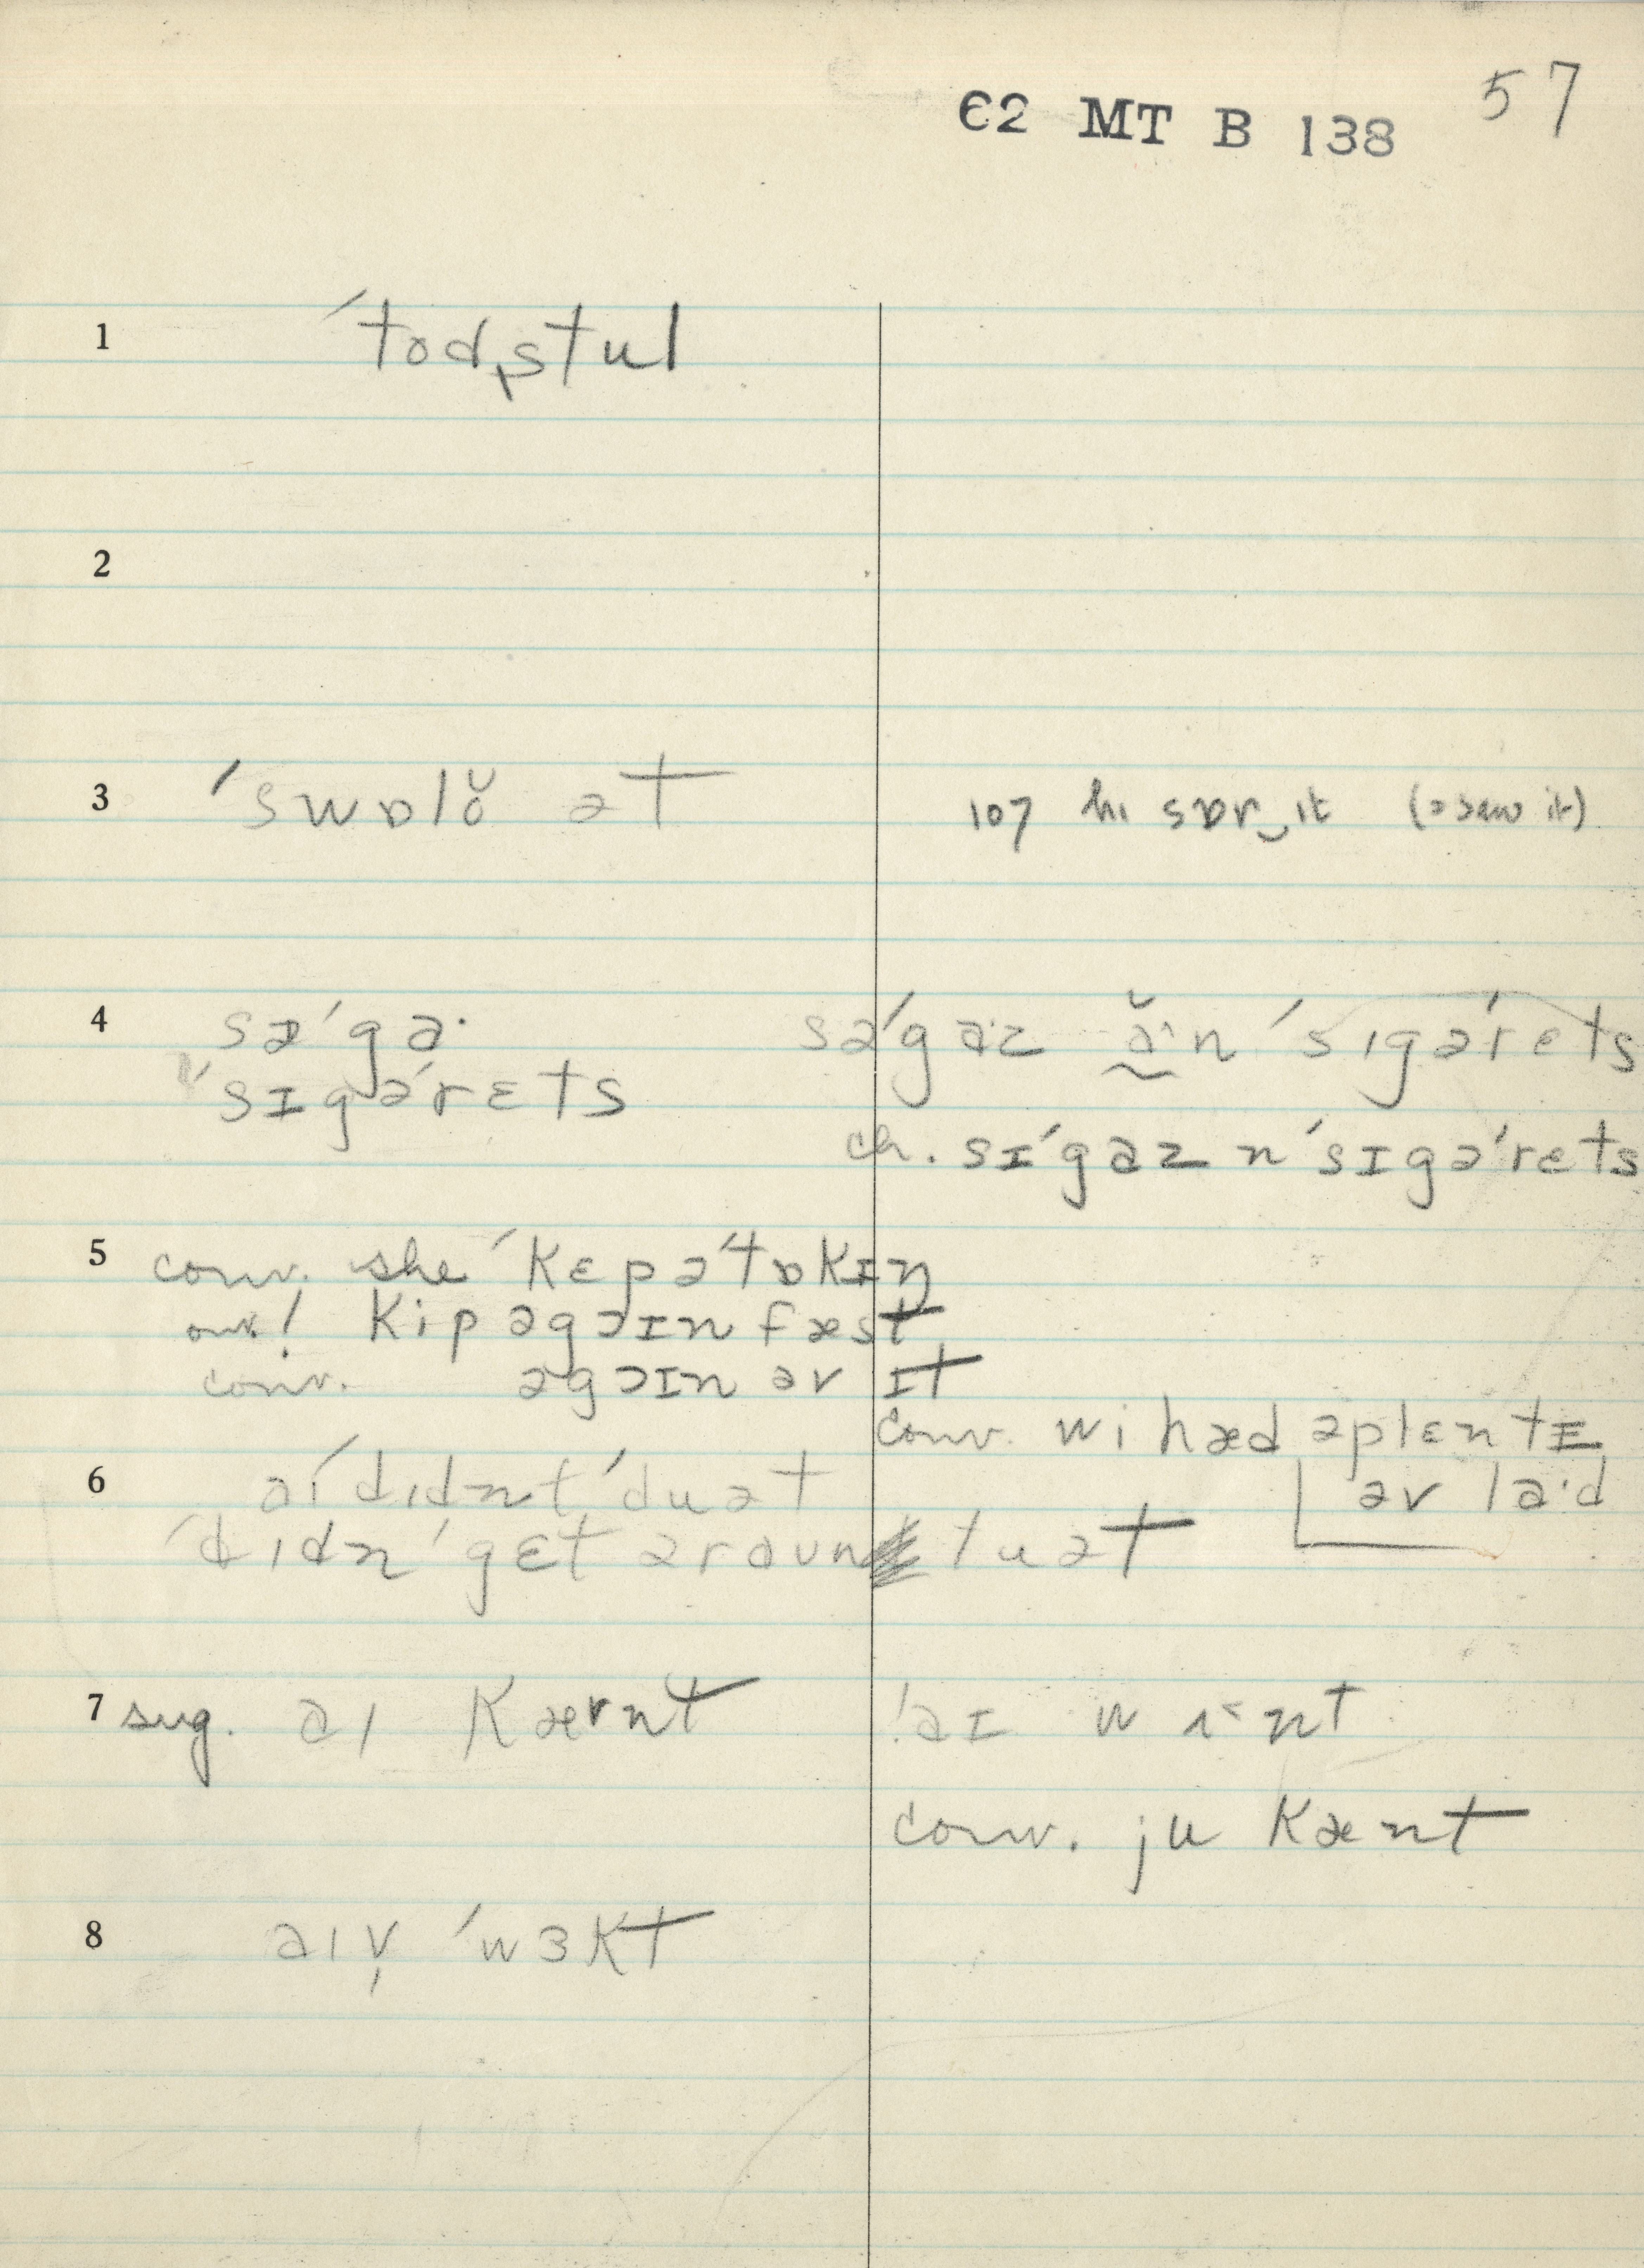 Є2 MT B 138 57
1 ˈtɒdˌstul
2
3 ˈswɒlŏ ət
107 hi sɒr‿ıt (= saw it)
4 səˈga·
ˈsɪgəˈrɛts
səˈgaːz ən ˈsıgəˈrets
ch. sɪˈgaz n ˈsɪgəˈrɛts
5 conv. she ˈkɛp əˈtɒkɪŋ
our! kip əgɔɪn fæst
conv. əgɔɪn əv ɪt
conv. wi hæd əplɛntɪ
əv la·d
6 aıˈdıdnt ˈdu ət
ˈdıdn ˈgɛt əraun tu ət
7 sug. aı kærnt
ˈaɪ w ʌ˂nt
conv. ju kænt
8 aıv̩ ˈwɜkt